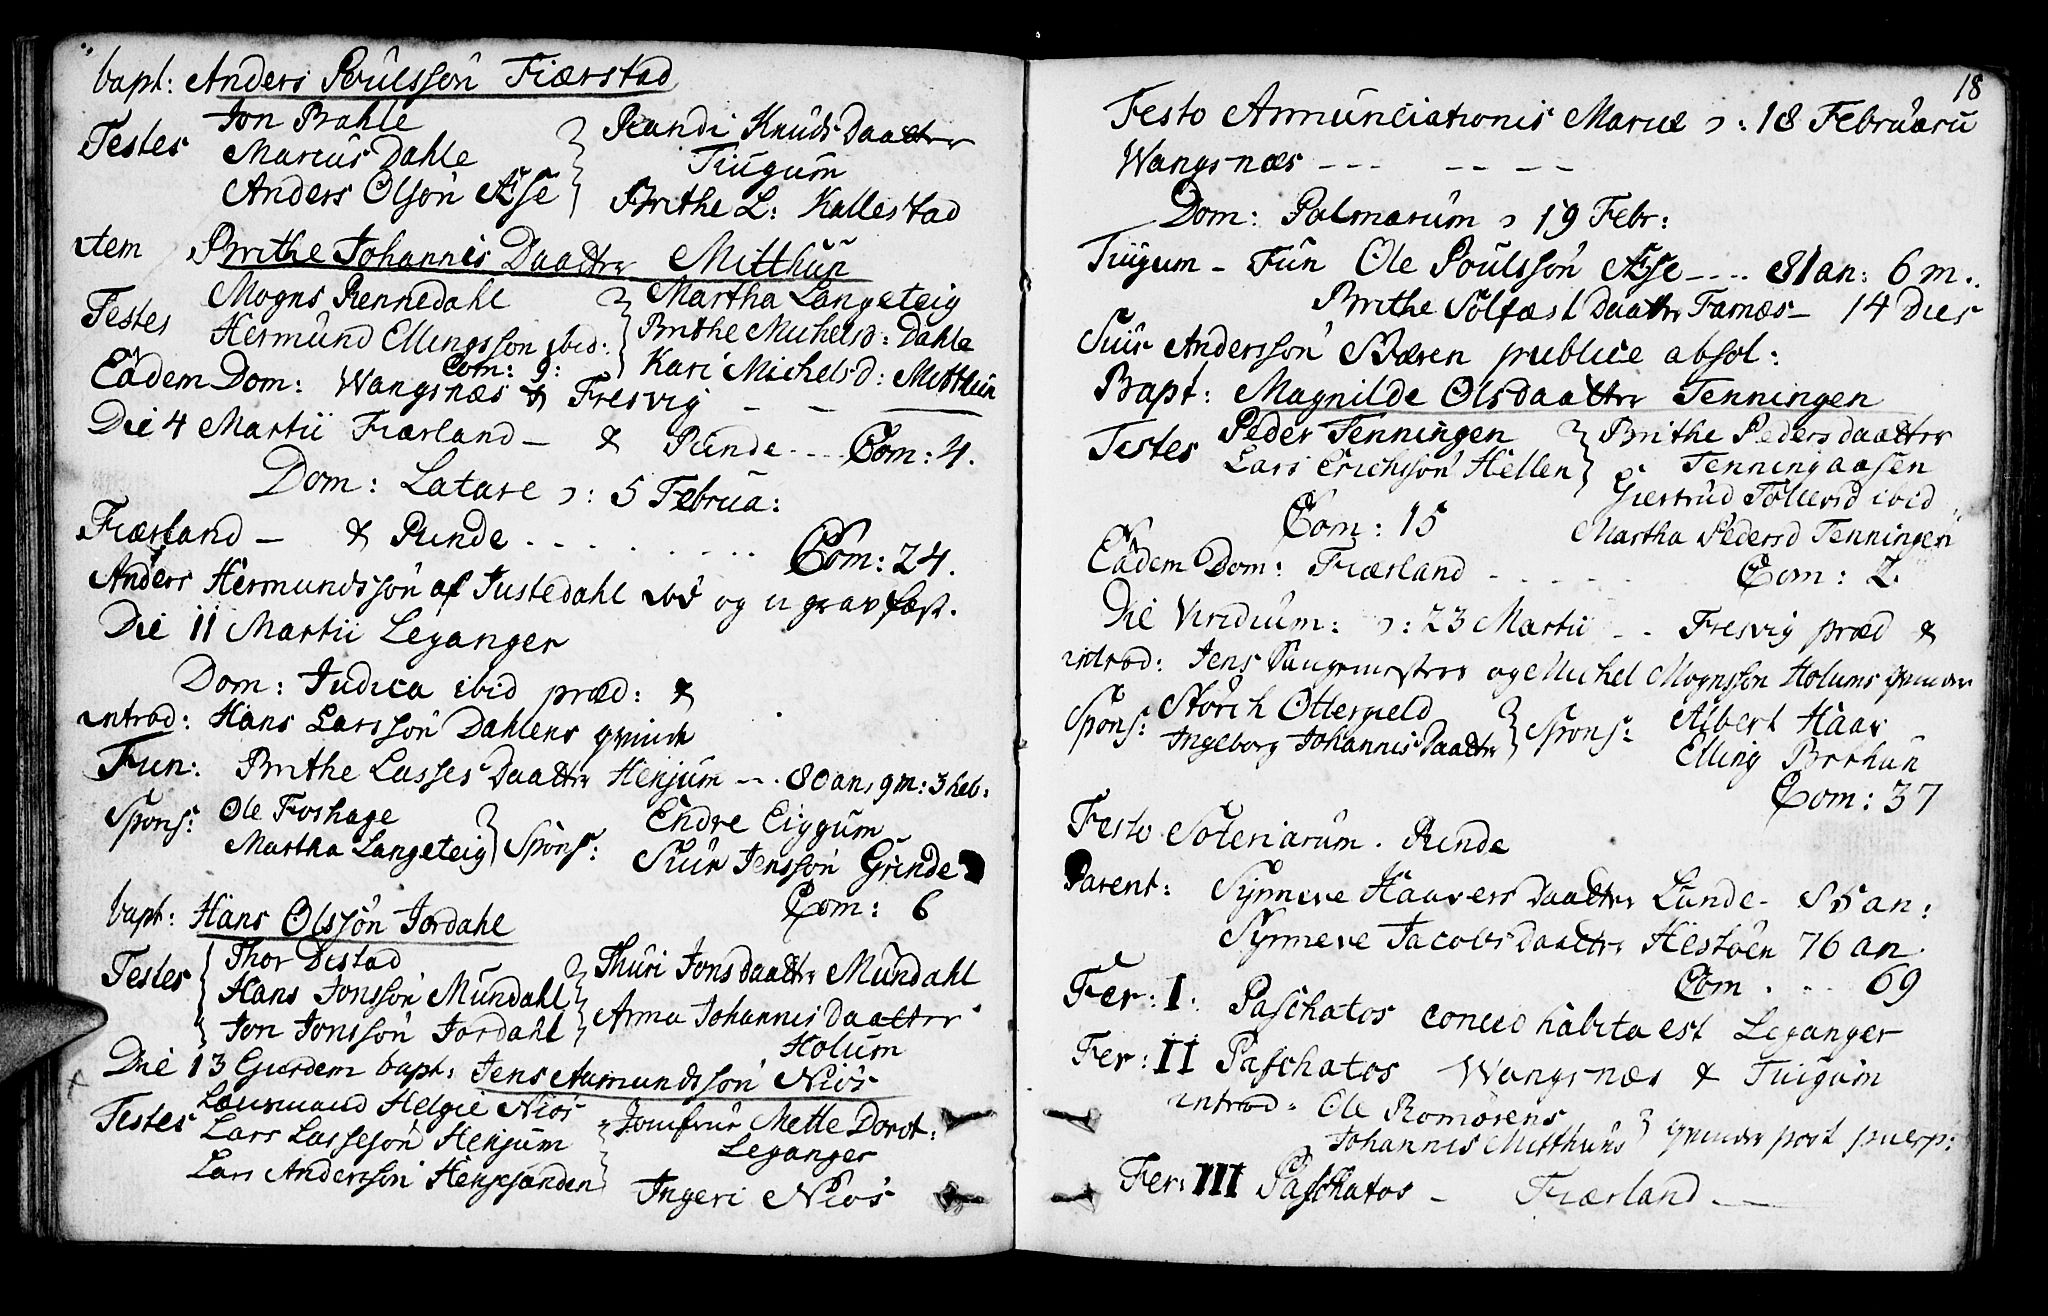 bapt: Anders Poulssön Fiærstad
Jon Brahle
Testes Marcus Dahle
Anders Olsön Æse
Randi Knuds Daatter
Tiugum
Brithe L: Kallestad
item Brithe Johannis Daatter Mitthun
Testes Mogns Rennedahl
Hermund Ellingsson ibid:
Martha Langeteig
Brithe Michelsd: Dahle
Kari Michelsd: Mitthun
Com: 9:
Eâdem Dom: Wangsnæs & Fresvig - -
Die 4 Martii Fiærland - & Rinde - - Com: 4.
Dom: Lætare ɔ: 5 Februa:
Fiærland - & Rinde - - - - Com: 24.
Anders Hermundssön af Justedahl og gravfæst.
Die 11 Martii Leganger
Dom: Judica ibid præd: &
introd: Hans Larssön Dahlens qvinde
Fun: Brithe Lasses Daatter Henjum - - 80 an, 9 m: 3 heb:
Spons: Ole Foshage
Martha Langeteig
Spons: Endre Eiggum
Siur Jenssön Grinde
Com: 6
bapt: Hans Olssön Jordahl
Testes Thor Distad
Hans Jonssön Mundahl
Jon Jonssön Jordahl
Thuri Jonsdaatter Mundahl
Anna Johannis daatter
Holum
Die 13 Ejusdem bapt: Jens Aamundssön Niös
Testes Lensmand Helgie Niös
Lars Lassesön Henjum
Lars Anderssön Henjesanden
Jomfrur Mette Dorot:
Leganger
Ingeri Niös
18
Festo Annunciationis Mariæ ɔ: 18 Februarii
Wangsnæs - - - - - - -
Dom: Palmarum ɔ 19 Febr:
Tiugum - Fun Ole Poulssön Æse - - 81 an: 6 m.
Brithe Solfæst Daatter Farnæs - 14 Dies
Siur Anderssön Bæren publice absol:
Bapt: Magnilde Olsdaatter Tenningen
Testes Peder Tenningen
Lars Erichssön Hellen
Brithe Pedersdaatter
Tenningaasen
Giertrud Tollevsd ibid
Martha Pedersd Tenningen
Com: 15
Eâdem Dom: Fiærland - - - - Com: 2.
Die Viridium: ɔ: 23 Martii - - Fresvig præd &
introd: Jens og Michel Mognsson Holums qvinder
Spons: Störch Ottergield
Ingeborg Johannis Daatter
Spons: Albert Haar
Elling Brthun
Com: 37
Festo Soteriarum. Rinde
Parent: Synneve Haavers Daatter Lunde - 85 an:
Synneve Jacobs Daatter Hestöen 76 an
Com - - 69
Fer: I. Paschatos concio habita est Leganger
Fer: II Paschatos Wangsnæs & Tiugum
introd: Ole Romörens
Johannis Mitthuns qvinder post puerp:
Fer: III Paschatos - Fiærland -